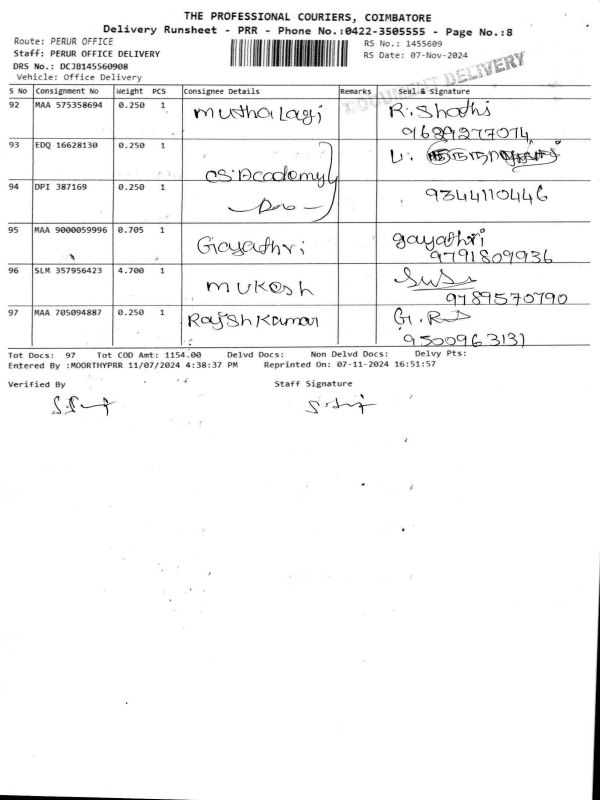 THE PROFESSIONAL COURIERS, COIMBATORE
Delivery Runsheet - PRR - Phone No.:0422-3505555 - Page No.:8
Route: PERUR OFFICE
RS No.: 1455609
Staff: PERUR OFFICE DELIVERY
RS Date: 07-Nov-2024
DRS No.: DCJB145560908
Vehicle: Office Delivery
DOCUMENT DELIVERY
S No Consignment No Weight PCS Consignee Details Remarks Seal & Signature
92 MAA 575358694 0.250 1 Muthalagi R. Shathi
9689277074
93 EDQ 16628130 0.250 1 CS Accademy
94 DPI 387169 0.250 1 - Do - 9344110446
95 MAA 9000059996 0.705 1 Gayathri gayathri
9791809936
96 SLM 357956423 4.700 1 Mukesh
9789570790
97 MAA 705094887 0.250 1 Rajsh Kumar
9500963131
Tot Docs: 97 Tot COD Amt: 1154.00 Delvd Docs: Non Delvd Docs: Delvy Pts:
Entered By :MOORTHYPRR 11/07/2024 4:38:37 PM Reprinted On: 07-11-2024 16:51:57
Verified By Staff Signature